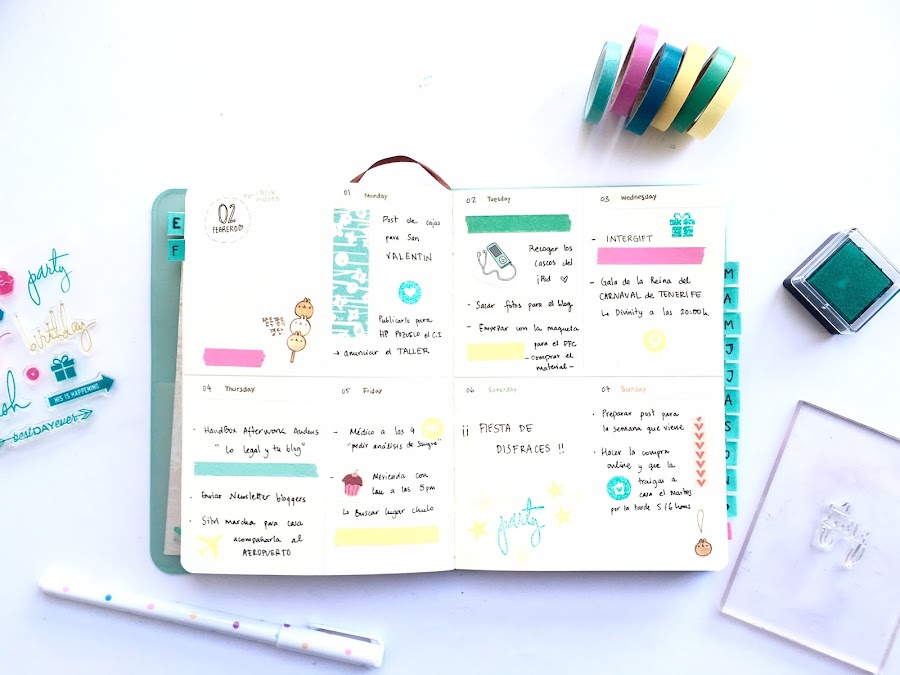 party
birthday
THIS IS HAPPENING
bestDAYever
E
F
02
FEBRERO
01 Monday
Post de cajas
para San
VALENTIN
Publicarlo para
HP POZUELO el C.I
→ anunciar el TALLER
02 Tuesday
Recoger los
cascos del
iPod
- Sacar fotos para el blog
- Empezar con la maqueta
para el PFC
- comprar el
material -
03 Wednesday
- INTERGIFT
- Gala de la Reina del
CARNAVAL de TENERIFE
Lo Divinity a las 20:00h
04 Thursday
· HandBox Afterwork Andens
"Lo legal y tu blog"
· Enviar Newsletter bloggers
· Silvi marcha para casa
acompañarla al
AEROPUERTO
05 Friday
- Médico a las 4
"pedir análisis de sangre"
· Merienda con
Lau a las 5pm
Lo Buscar lugar chulo
06 Saturday
¡¡ FIESTA DE
DISFRACES !!
party
07 Sunday
· Preparar post para
la semana que viene
· Hacer la compra
online y que la
traigan a
casa el martes
por la tarde 5/6 horas
M
A
M
J
J
A
S
O
N
D